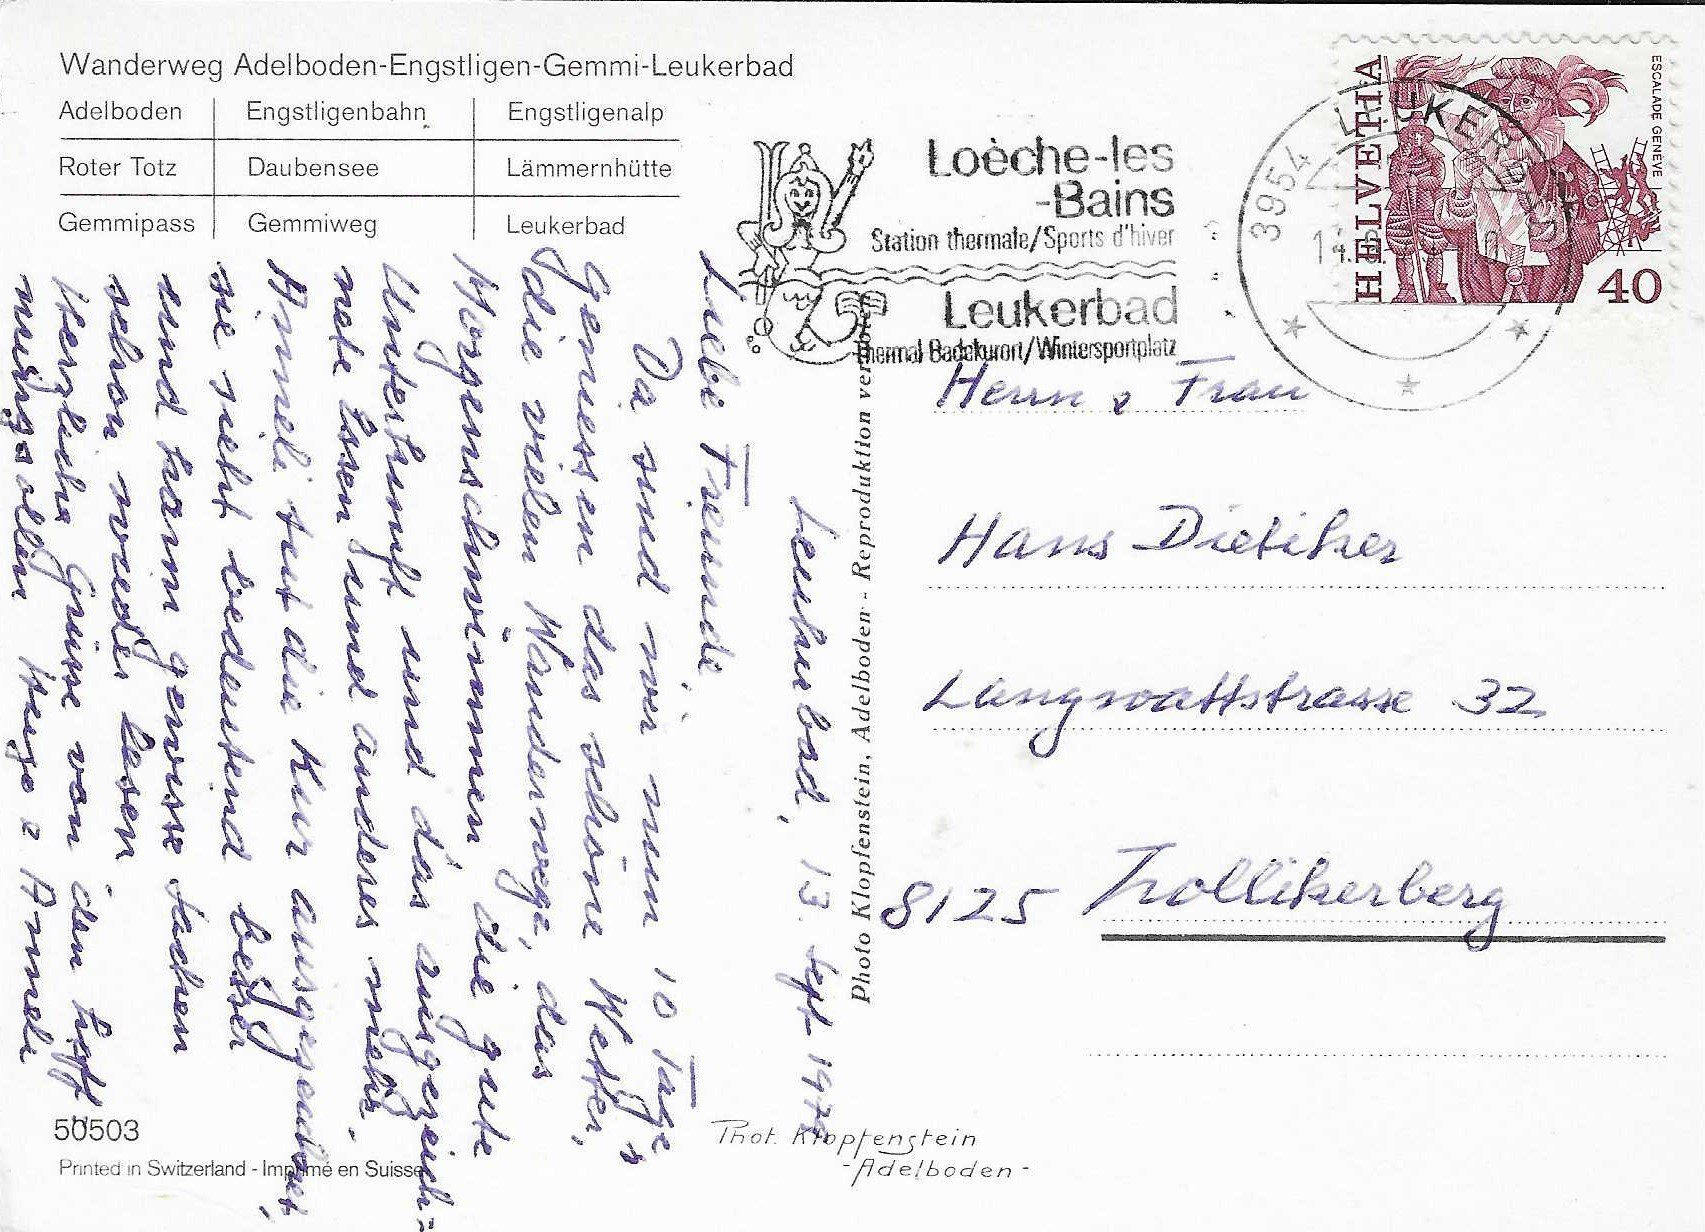 Wanderweg Adelboden-Engstligen-Gemmi-Leukerbad
Adelboden Engstligenbahn Engstligenalp
Roter Totz Daubensee Lämmernhütte
Gemmipass Gemmiweg Leukerbad
Loèche-les
-Bains
Station thermale/Sports d'hiver
Leukerbad
Thermal Badekurort/Wintersportplatz
3954 LEUKERBAD
HELVETIA
ESCALADE GENÈVE
40
Leukerbad, 13. Sept. 197
Liebi Freunde
Da sind wir nun 10 Tage &
geniessen das schöne Wetter,
die vielen Wanderwege, das
Morgenschwimmen, die gute
Unterkunft und das ausgezeich=
nete Essen und anderes mehr.
Anneli tut die Kur ausgezeichnet,
sie sieht bedeutend besser
und kann gewisse Sachen
schon wieder lesen
Herzliche Grüsse von den hoff=
nungsvollen Hugo & Anneli
Photo Klopfenstein, Adelboden - Reproduktion verboten
Herrn & Frau
Hans Dietiker
Langwattstrasse 32
8125 Zollikerberg
50503
Printed in Switzerland - Imprimé en Suisse
Phot. Klopfenstein
- Adelboden -